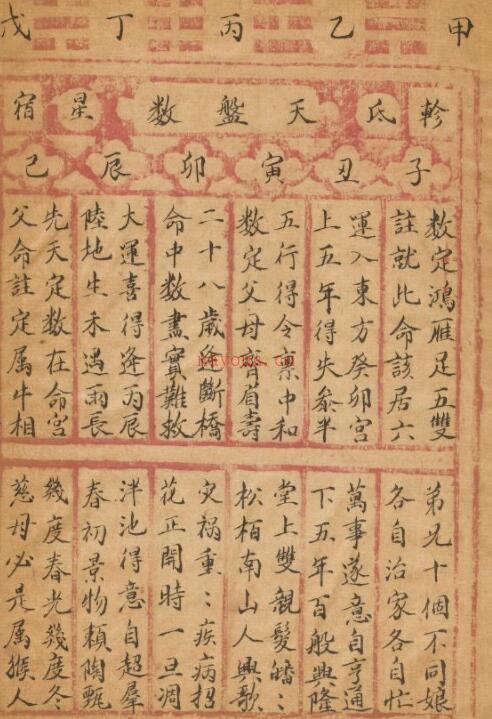 甲 乙 丙 丁 戊
軫 氐 天盤数 星 宿
子 丑 寅 卯 辰 巳
数定鴻雁足五雙
註就此命該居六
運入東方癸卯宮
上五年得失叅半
五行得令稟中和
数定父母齊眉壽
二十八歲逢斷橋
命中数盡實難救
大運喜得逢丙辰
陸地生禾遇雨長
先天定数在命宮
父命註定属牛相
弟兄十個不同娘
各自治家各自忙
萬事遂意自亨通
下五年百般興隆
堂上雙親髮皤〻
松栢南山人興歌
灾禍重〻疾病招
花正開時一旦凋
泮池得意自超羣
春初景物頼陶甄
幾度春光幾度冬
慈母必是属猴人